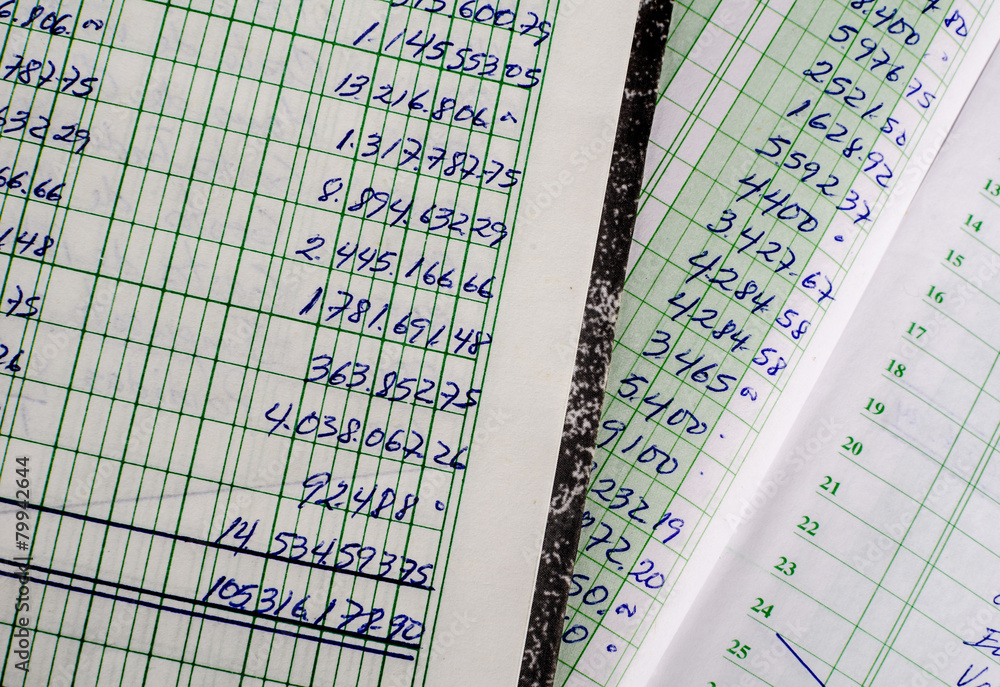 6.806.
787.75
632 29
66.66
1.48
75
26
600.79
1.145553 05
13.216.806
1.317.787.75
8.894.632 29
2.445.166 66
1.781.691 48
363.852 75
4.038.067 26
92.488
14.534.593 75
105316.178.90
80
8.400
5.976 75
2521.50
1628.92
5592 37
4400
3.427.67
4.284.58
4.284.58
3.465
5.400.
9100.
232.19
72.20
50.
0
13
14
15
16
17
18
19
20
21
22
23
24
25
Adobe Stock | #79942644